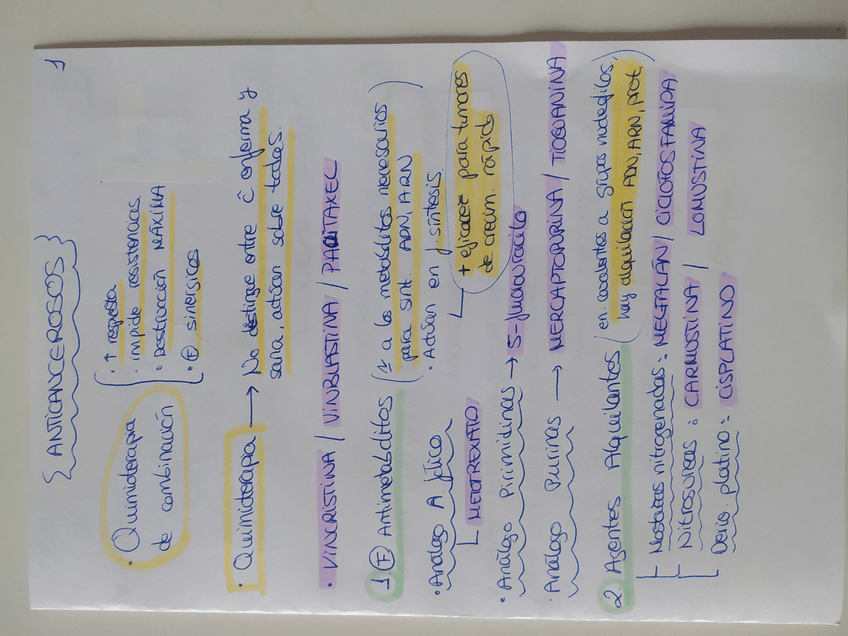 1
{ANTICANCEROSOS}
· Quimioterapia de combinación
· ↑ respuesta
· impide resistencias
· destrucción MÁXIMA
· Ⓕ sinérgicos
· Quimioterapia → No distingue entre c̄ enferma y
sana, actúan sobre todas.
· VINCRISTINA / VINBLASTINA / PACLITAXEL
1. Ⓕ Antimetabolitos (≃ a los metabolitos necesarios
para sínt. ADN, ARN)
· Actúan en síntesis
+ eficaces para tumores
de crecim. rápido
· Análogo A. fólico
METOTREXATO
· Análogo Pirimidinas → 5-fluorouracilo
· Análogo Purinas → MERCAPTOPURINA / TIOGUANINA
2. Agentes Alquilantes (en covalentes a grupos nucleófilos,
hay alquilación ADN, ARN, prot.)
Mostazas nitrogenadas: MELFALÁN / CICLOFOSFAMIDA
Nitrosureas: CARMUSTINA / LOMUSTINA
Deriv. platino: CISPLATINO